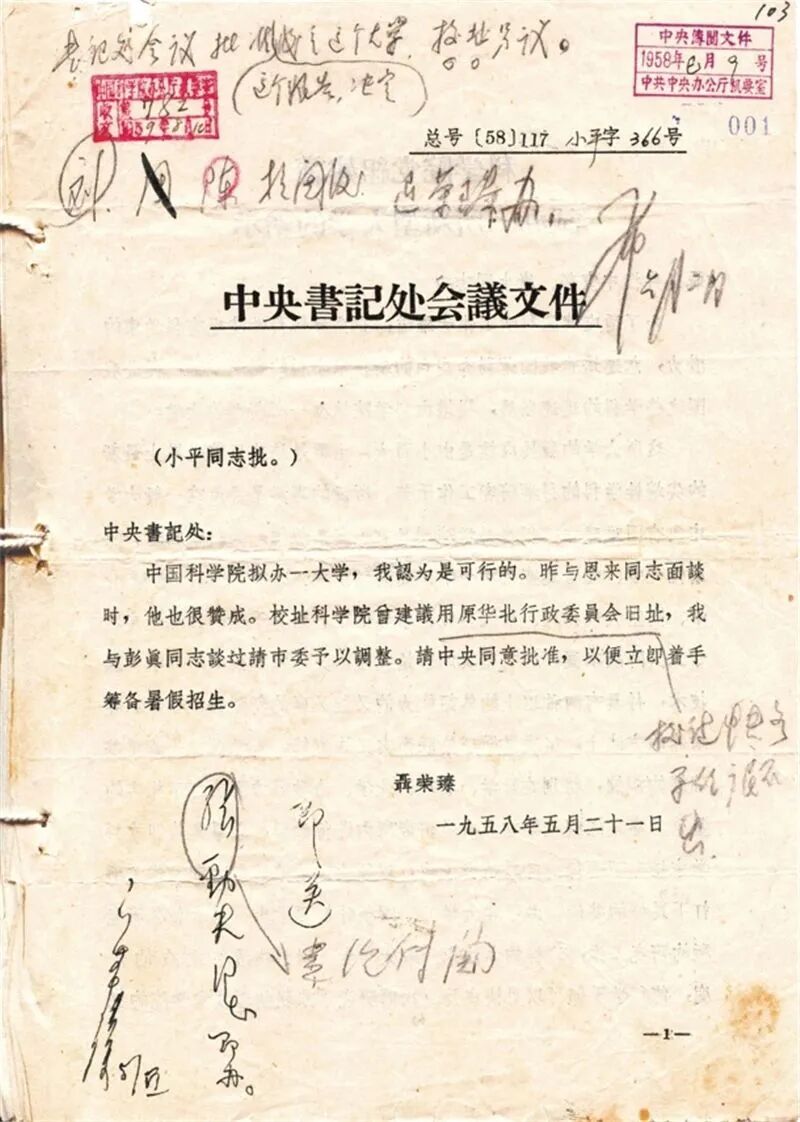 103
书记处会议批准成立这个大学,校址另议。
(这个报告,决定)
中央傳閱文件
1958年 9 号
中共中央办公厅机要室
001
782
总号〔58〕117 小平字366号
刘 周 陈 荣臻办。
六月二日
中央書記处会議文件
(小平同志批。)
中央書記处:
中国科学院拟办一大学,我認为是可行的。昨与恩来同志面談
时,他也很赞成。校址科学院曾建議用原华北行政委員会旧址,我
与彭眞同志談过請市委予以調整。請中央同意批准,以便立卽着手
筹备暑假招生。
聶荣臻
一九五八年五月二十一日
即送
張劲夫同志即办。
—1—